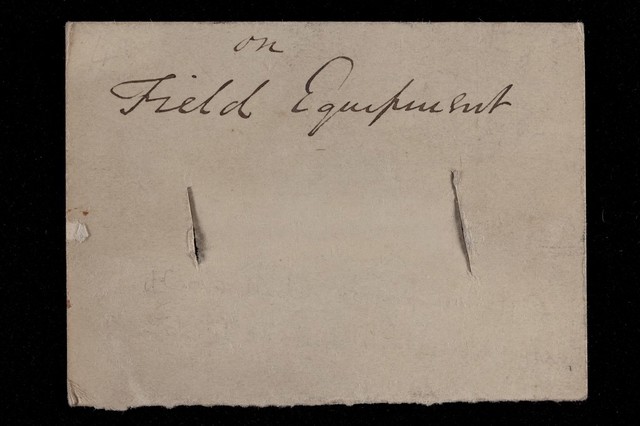 on
Field Equipment